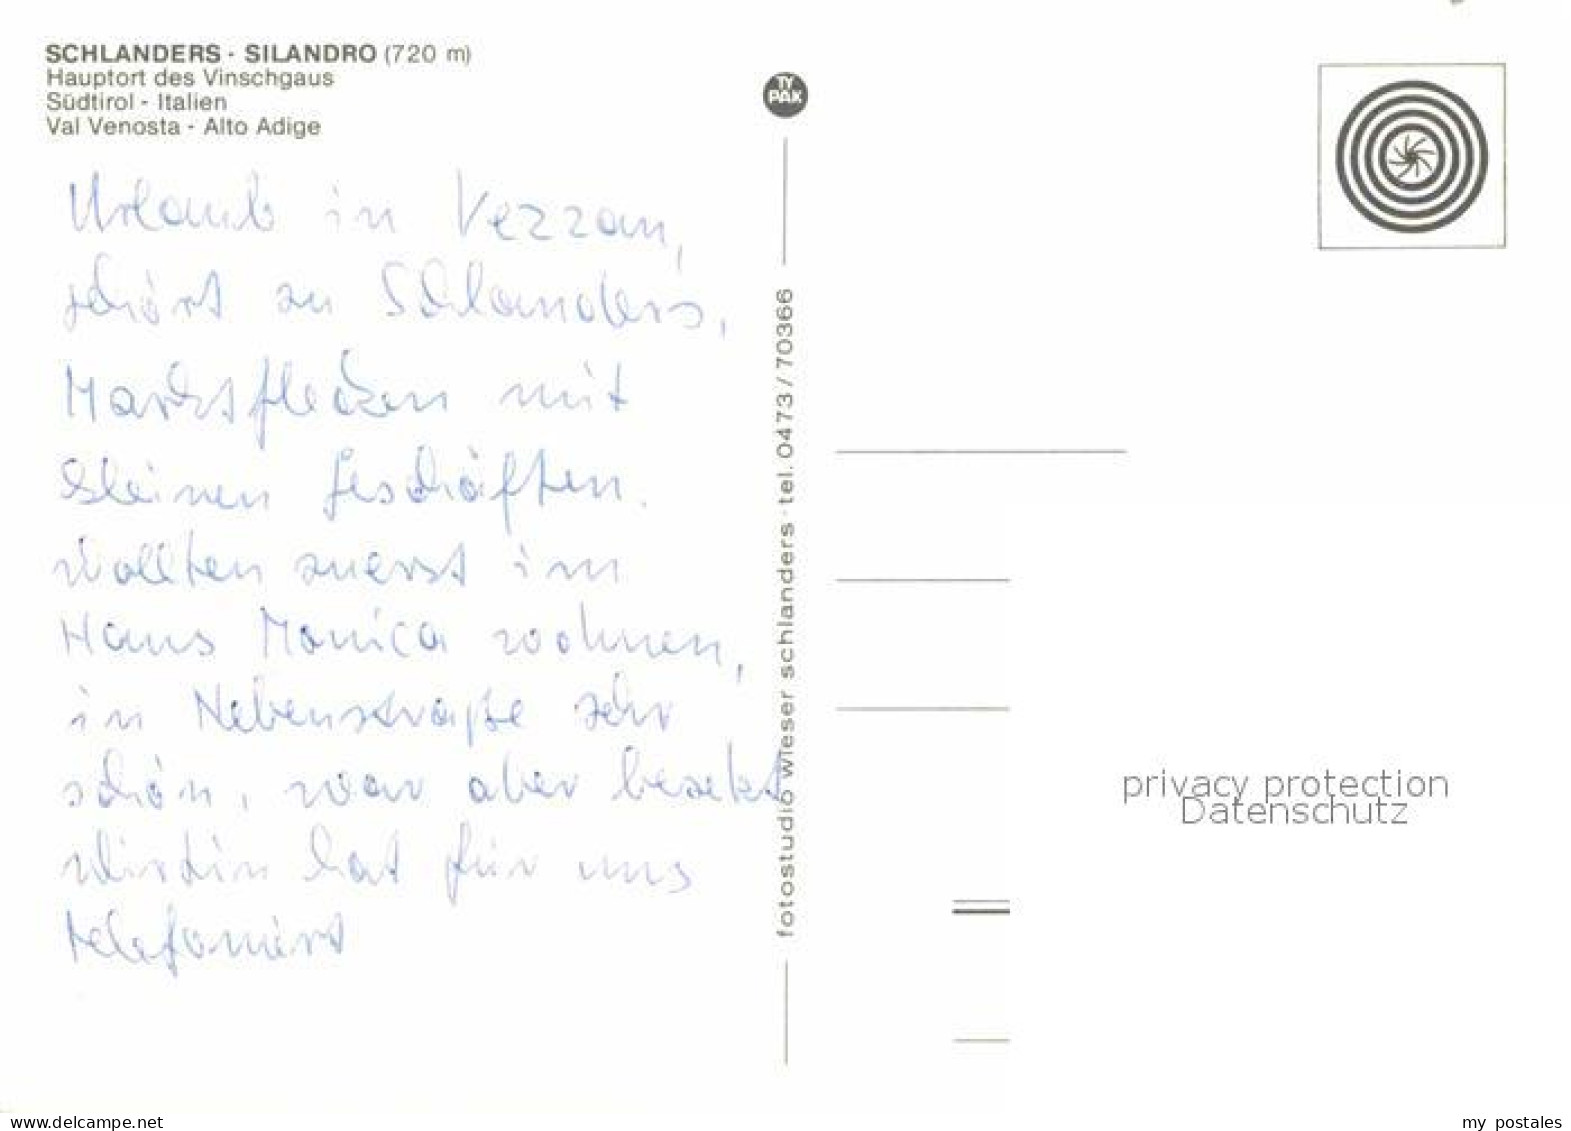 SCHLANDERS · SILANDRO (720 m)
Hauptort des Vinschgaus
Südtirol - Italien
Val Venosta - Alto Adige
TY PAK
Urlaub in Vezzan,
gehört zu Schlanders,
Marktflecken mit
kleinen Geschäften.
Wollten zuerst im
Haus Monica wohnen,
in Nebenstraße sehr
schön, war aber besetzt
Wirtin hat für uns
telefoniert
fotostudio wieser schlanders · tel. 0473/70366
privacy protection
Datenschutz
www.delcampe.net
my_postales